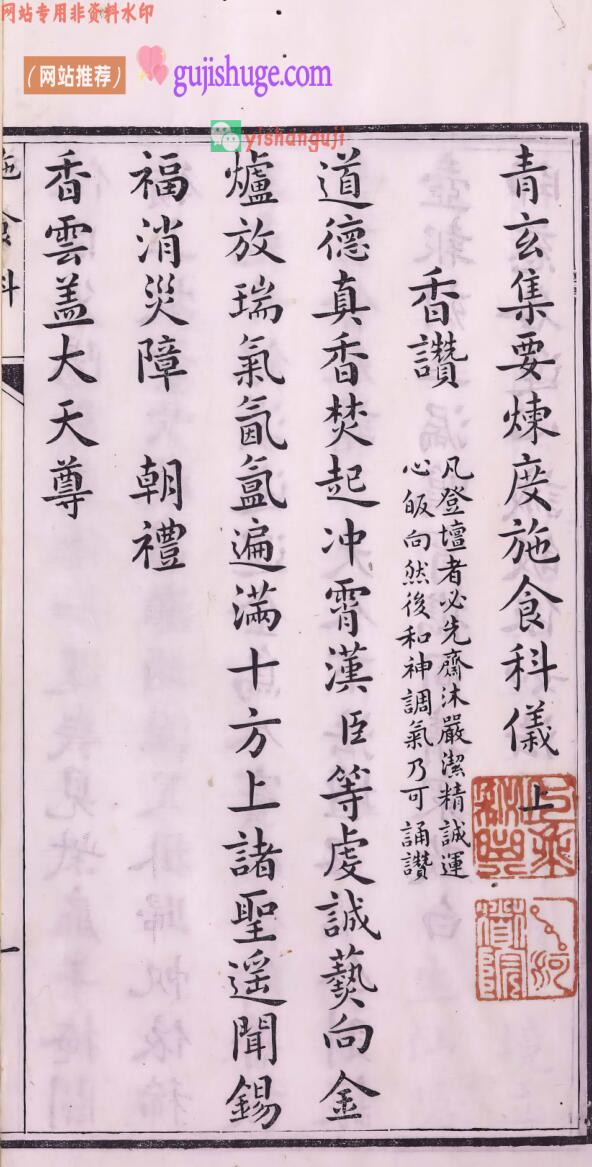 网站专用非资料水印
（网站推荐）
gujishuge.com
yishanguji
青玄集要煉度施食科儀上
香讚
凡登壇者必先齋沐嚴潔精誠運
心皈向然後和神調氣乃可誦讚
道德真香焚起冲霄漢臣等虔誠爇向金
爐放瑞氣氤氳遍滿十方上諸聖遥聞錫
福消災障　朝禮
香雲盖大天尊
施食科
一